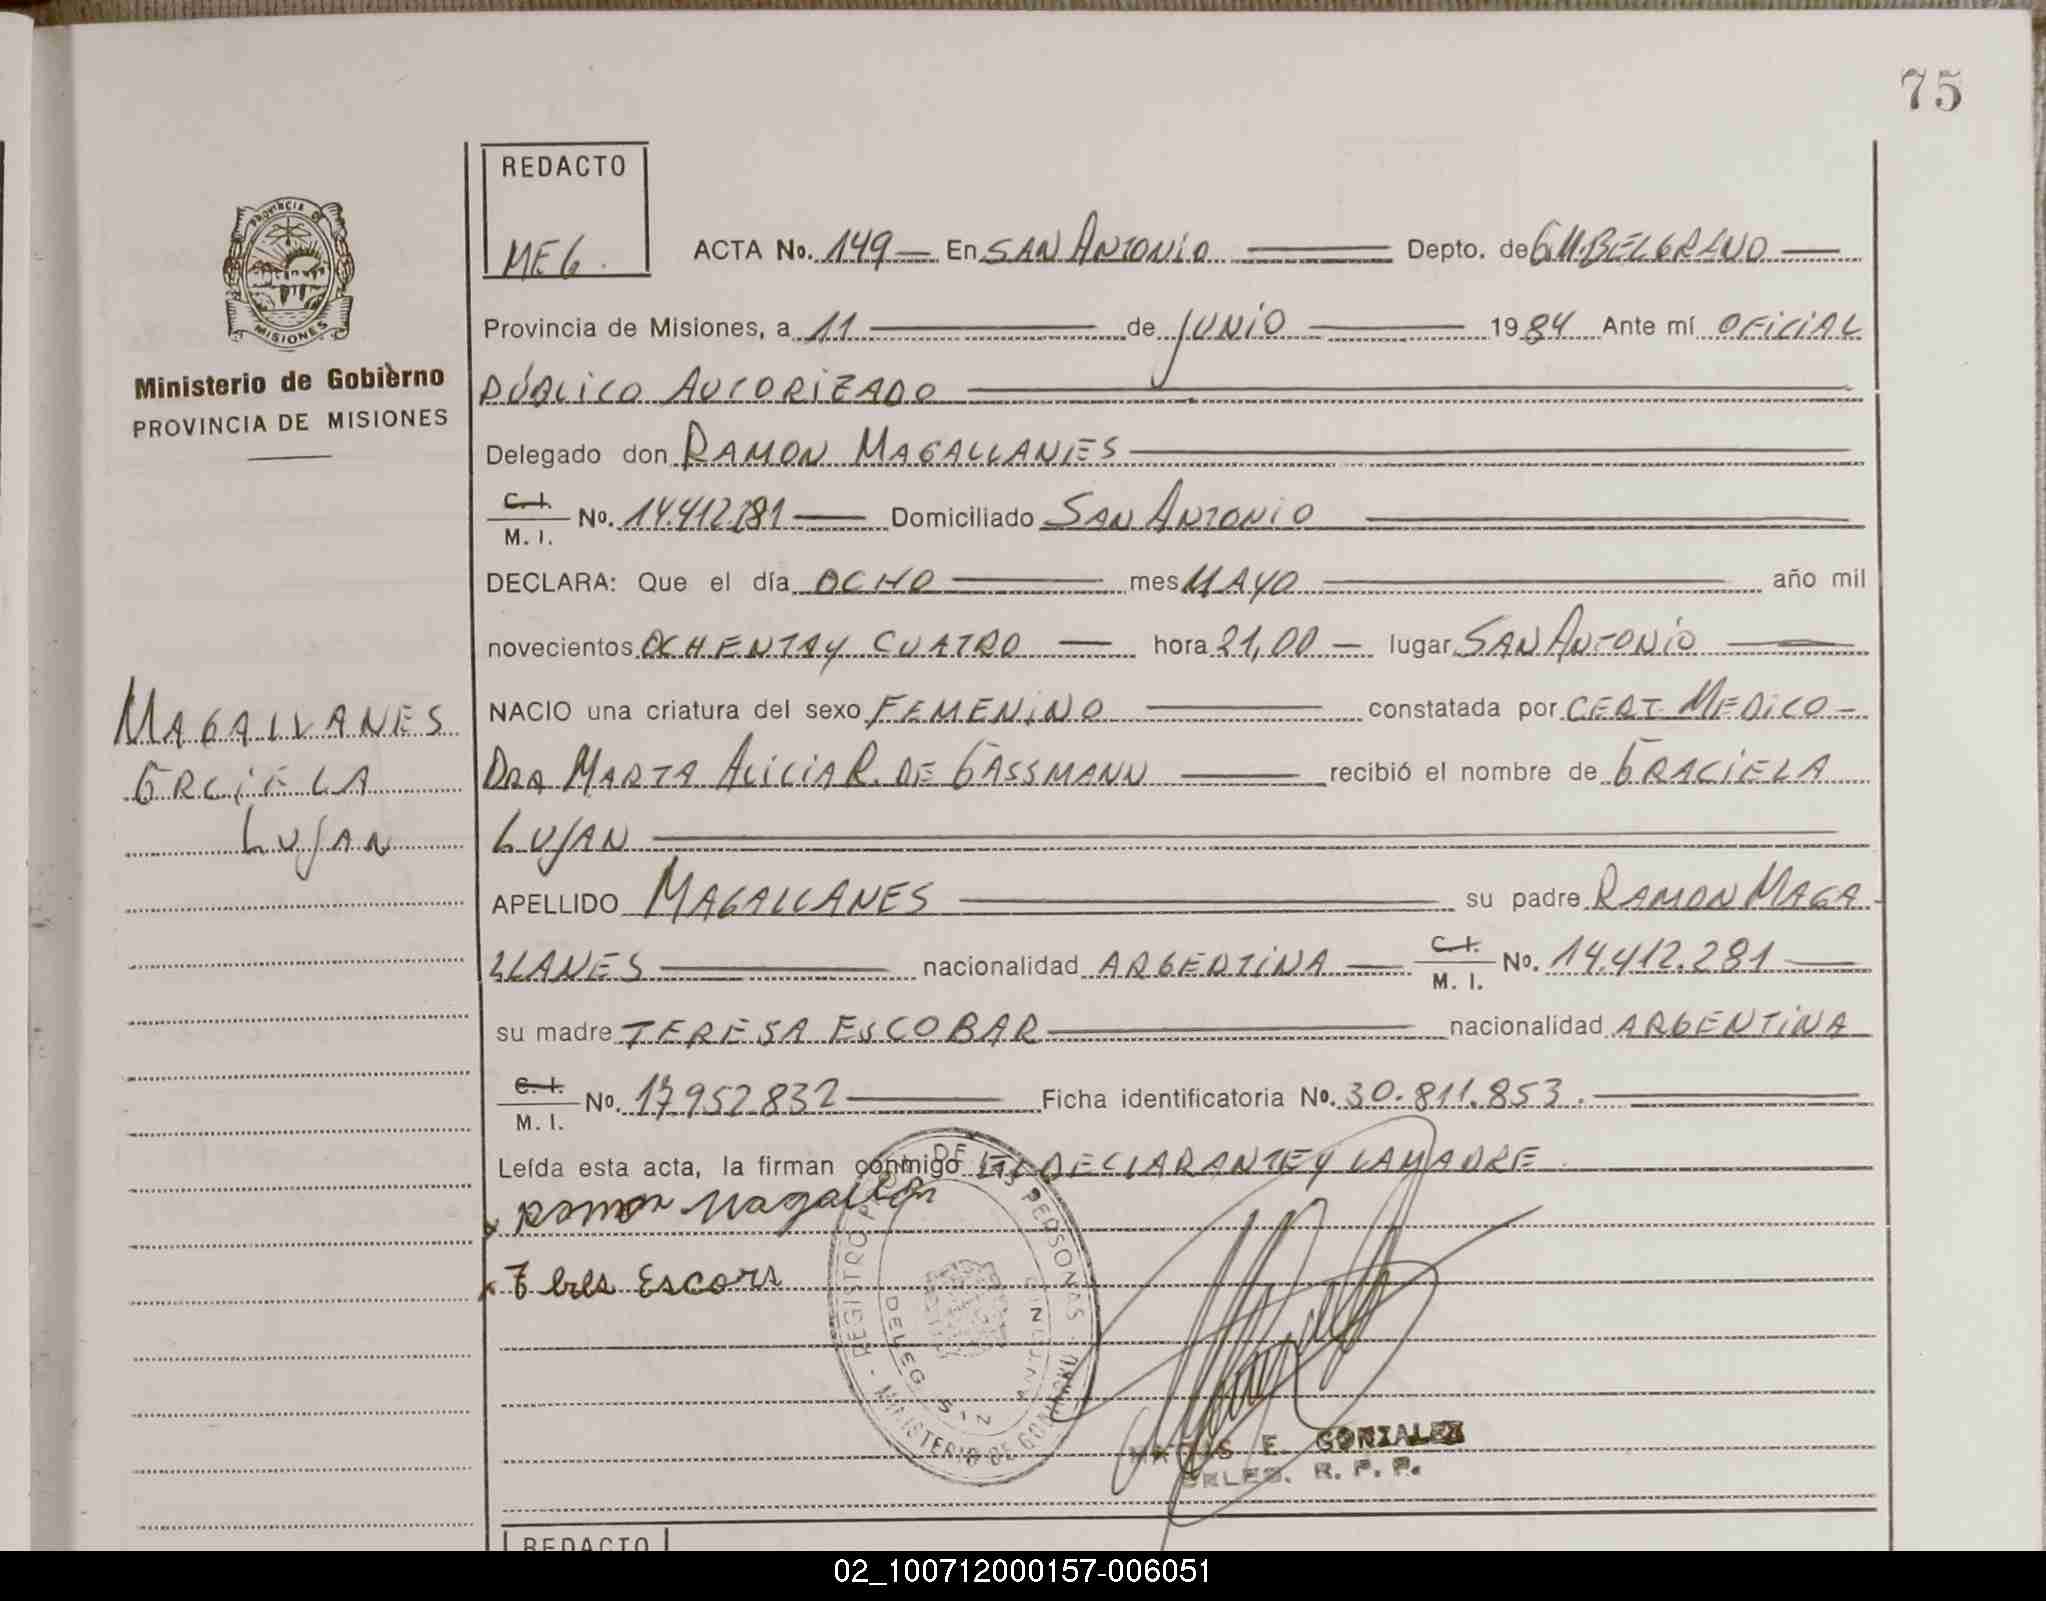 75
REDACTO
MEG.
ACTA No. 149 En SAN ANTONIO Depto. de G.M.BELGRANO
PROVINCIA DE
MISIONES
Provincia de Misiones, a 11 de JUNIO 1984 Ante mí OFICIAL
Ministerio de Gobierno
PROVINCIA DE MISIONES
PÚBLICO AUTORIZADO
Delegado don RAMON MAGALLANES
C. I.
M. I.
No. 14.412.281 Domiciliado SAN ANTONIO
DECLARA: Que el día OCHO mes MAYO año mil
novecientos OCHENTA Y CUATRO hora 21,00 lugar SAN ANTONIO
MAGALLANES
GRCIELA
LUJAN
NACIO una criatura del sexo FEMENINO constatada por CERT MEDICO
DRA MARTA ALICIA R. DE GASSMANN recibió el nombre de GRACIELA
LUJAN
APELLIDO MAGALLANES su padre RAMON MAGA
LLANES nacionalidad ARGENTINA C. I.
M. I.
No. 14.412.281
su madre TERESA ESCOBAR nacionalidad ARGENTINA
C. I.
M. I.
No. 17.952.832 Ficha identificatoria No. 30.811.853.
Leída esta acta, la firman conmigo EL DECLARANTE Y LA MADRE
x Ramon Magallan
x Escors
REGISTRO DE LAS PERSONAS
MINISTERIO DE GOBIERNO
DELEG
E. GONZALEZ
R. P. P.
REDACTO
02_100712000157-006051